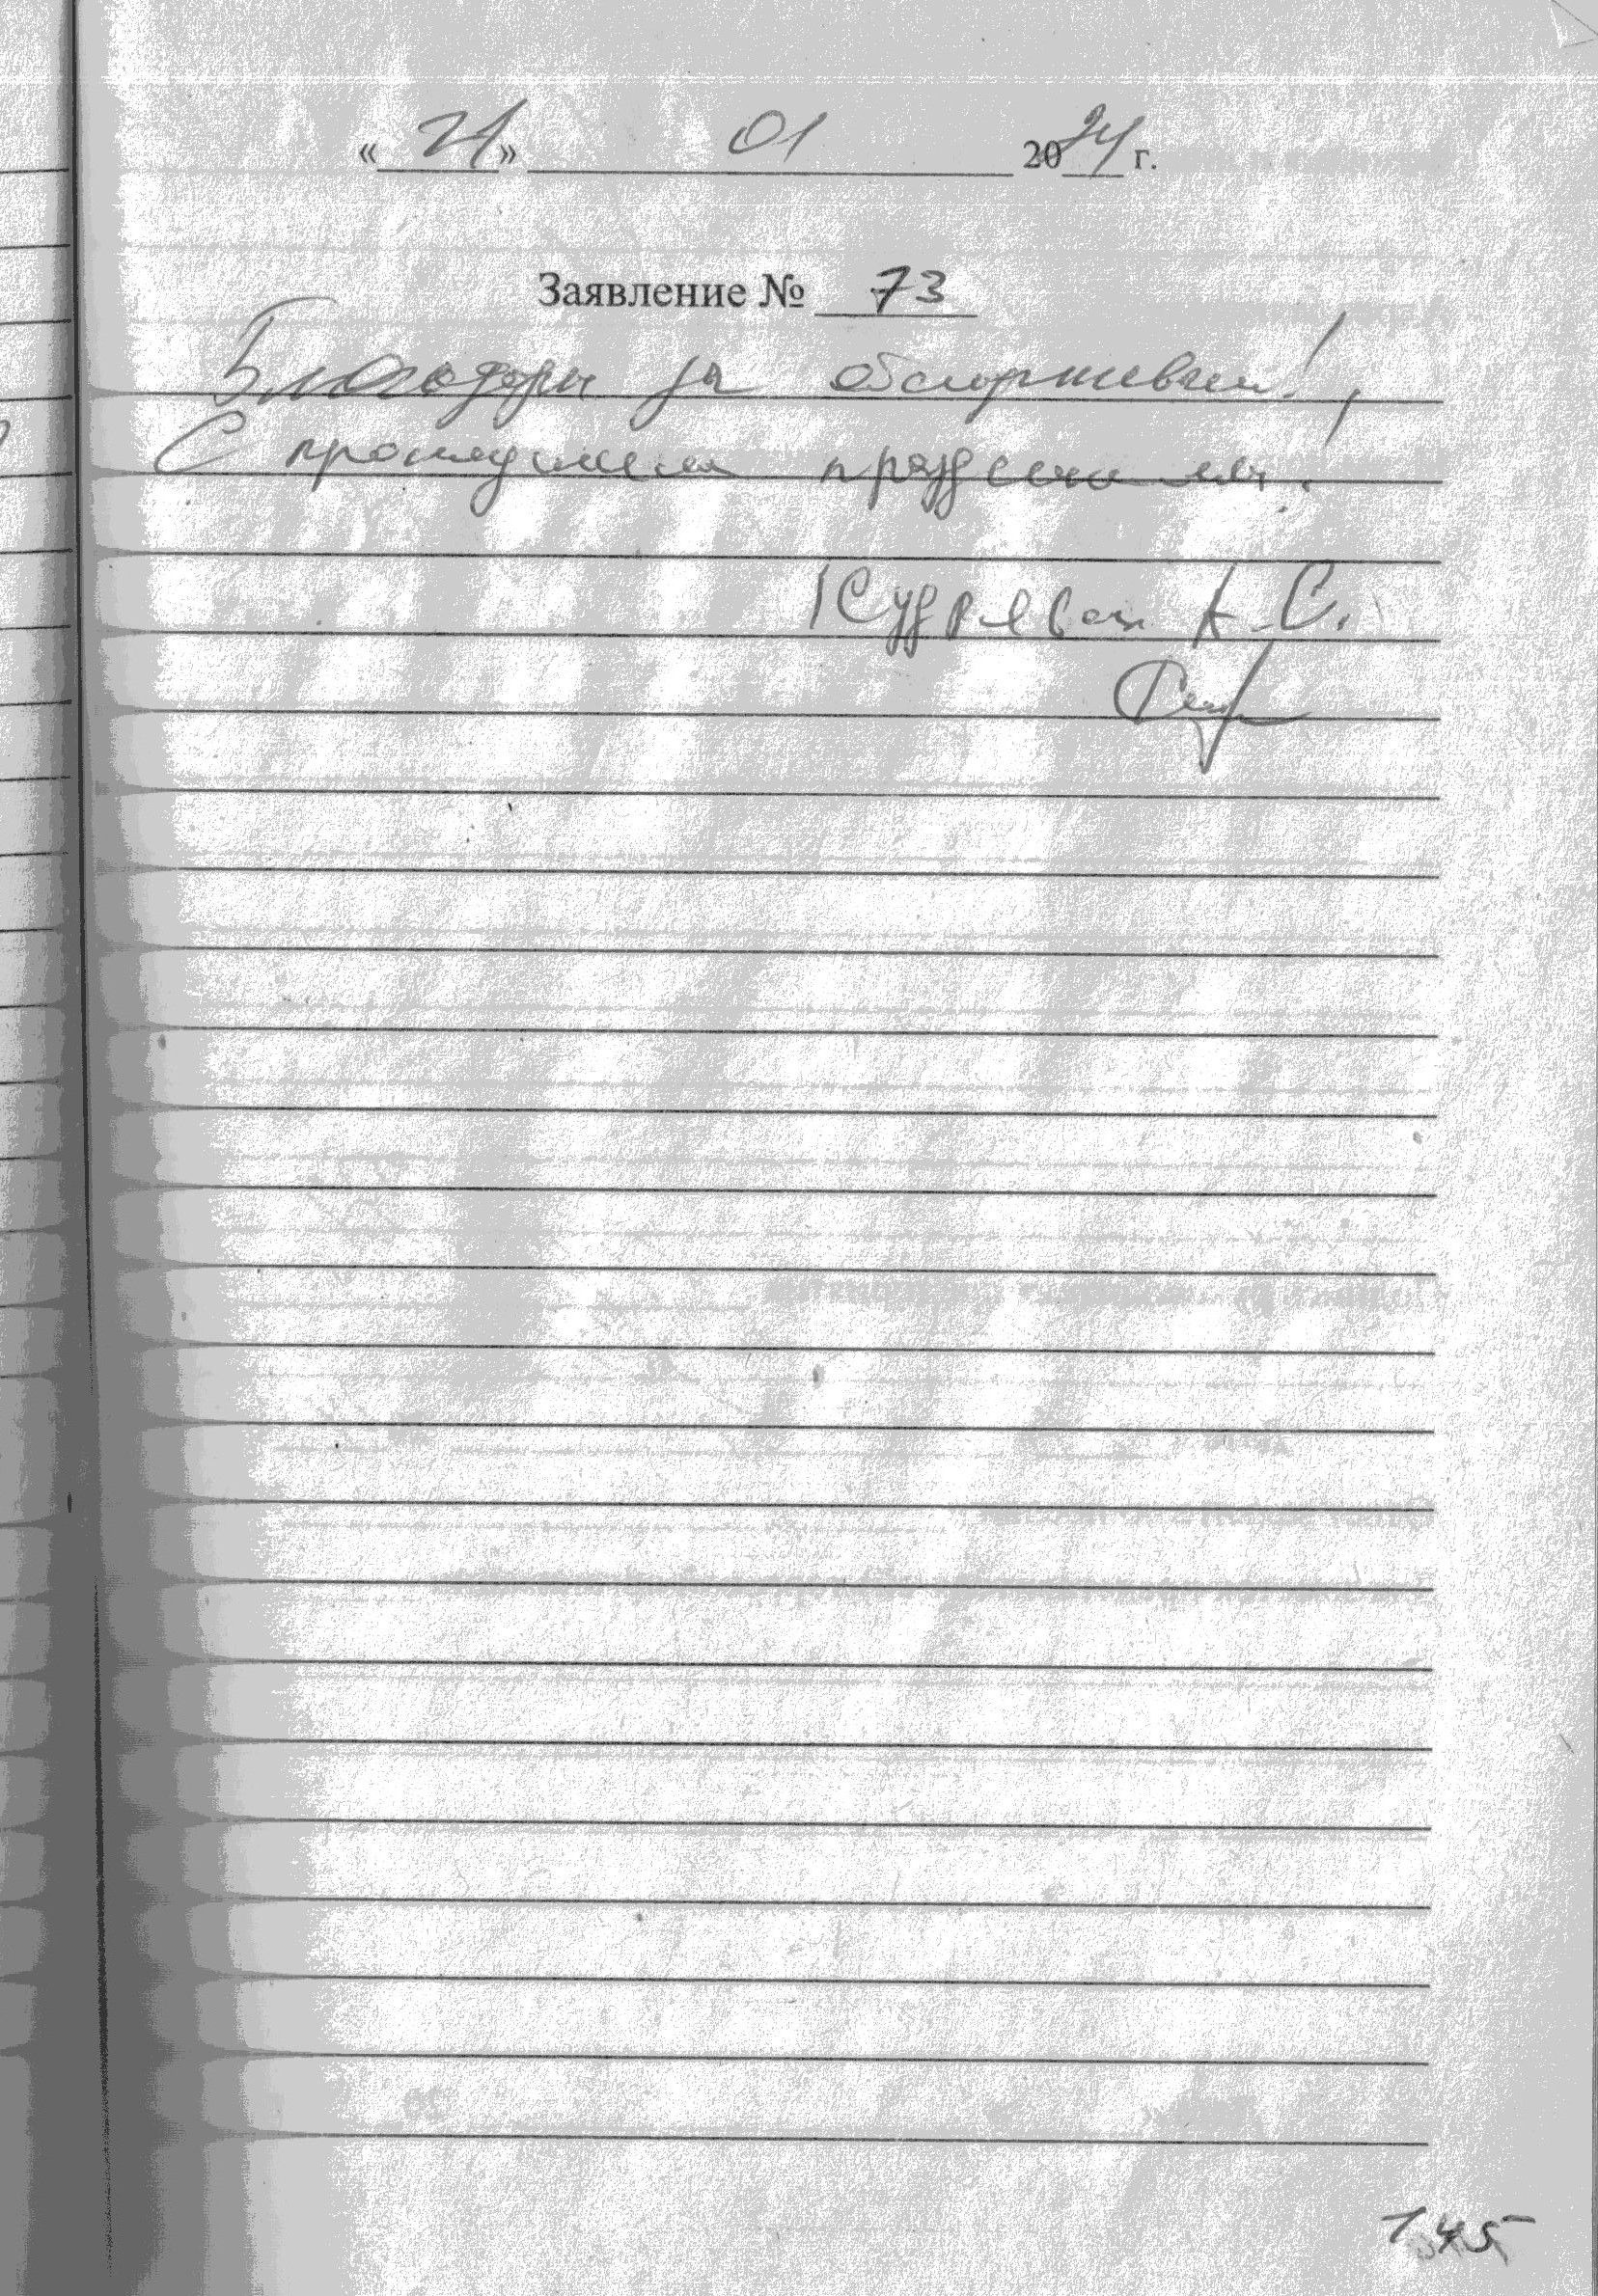 « 21 » 01 2024 г.
Заявление № 73
Благодарю за обслуживание!
С прошедшими праздниками!
А.С.
145